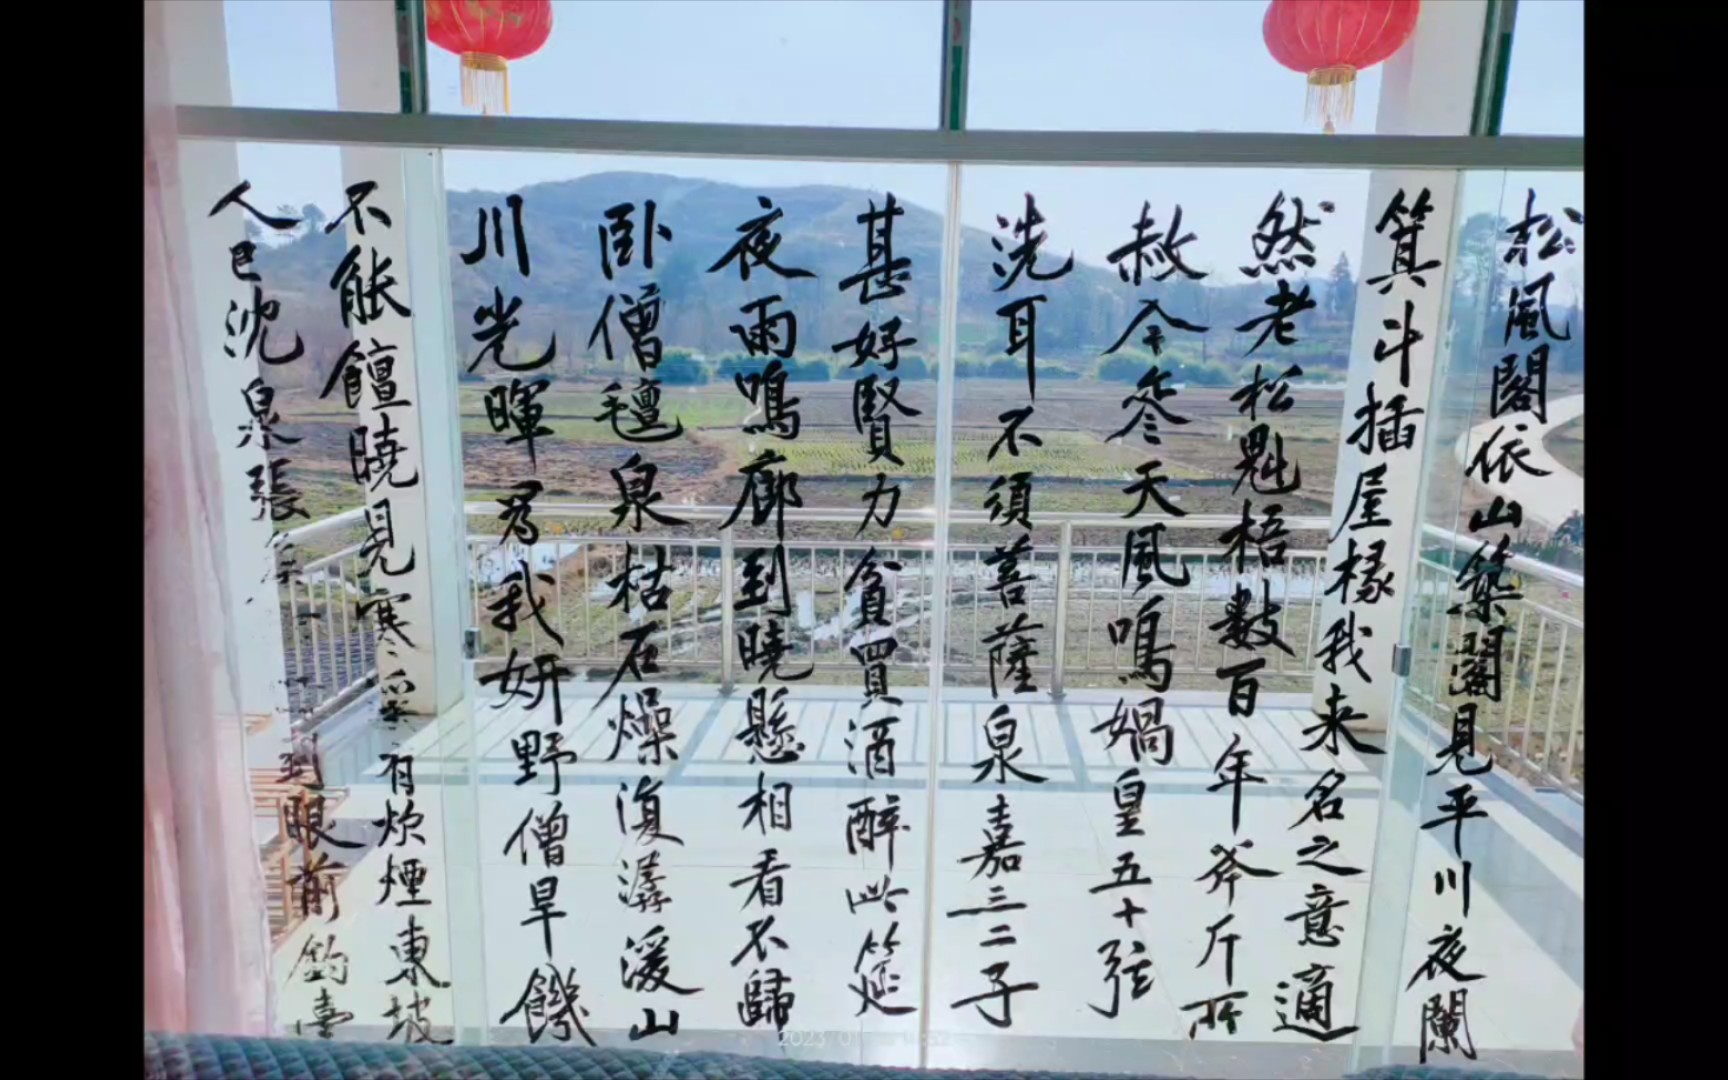 松風閣依山築閣見平川夜闌
箕斗插屋椽我来名之意適
然老松魁梧數百年斧斤所
赦今参天風鳴媧皇五十弦
洗耳不須菩薩泉嘉三二子
甚好賢力貧買酒醉此筵
夜雨鳴廊到曉懸相看不歸
卧僧氊泉枯石燥復潺湲山
川光暉為我妍野僧旱饑
不能饘曉見寒溪有炊煙東坡
人已沈泉張 到眼前釣臺
2023/01